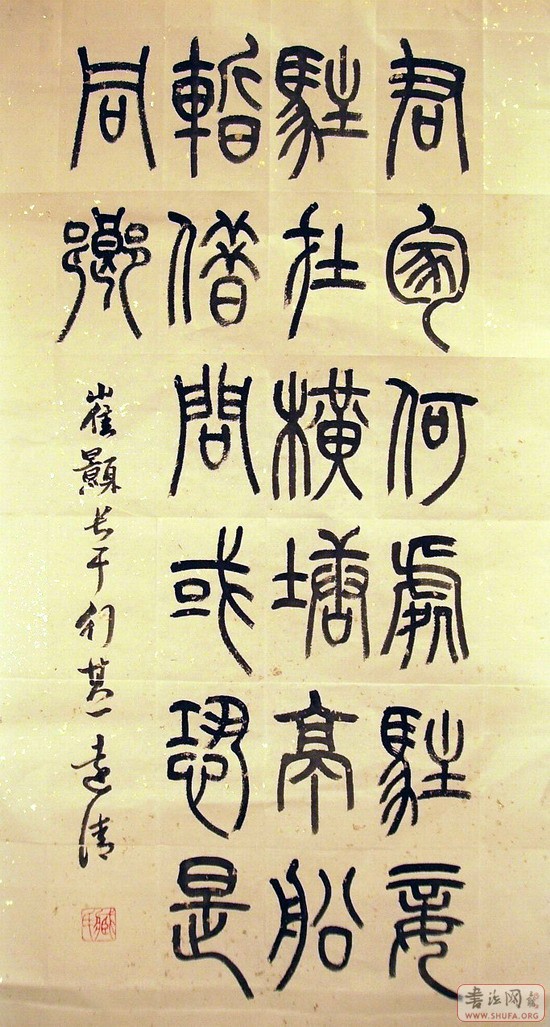 君家何處駐妾
駐在橫塘亭船
暫借問或恐是
同鄉
崔顥长干行其一 清
書法网
WWW.SHUFA.ORG